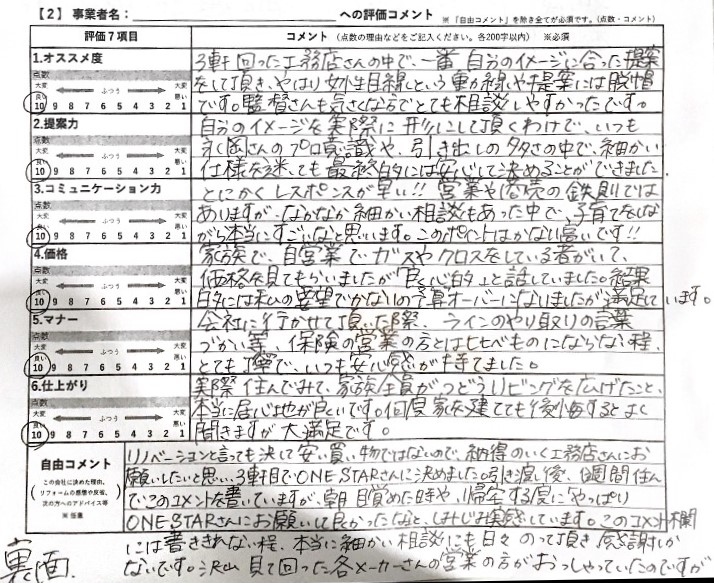 【2】事業者名: への評価コメント ※「自由コメント」を除き全てが必須です。(点数・コメント)
評価7項目 コメント(点数の理由などをご記入ください。各200字以内) ※必須
1.オススメ度
点数
大変良い ふつう 大変悪い
10 9 8 7 6 5 4 3 2 1
3軒回った工務店さんの中で、一番 自分のイメージに合った提案
をして頂き、やはり女性目線という動線や提案には脱帽
です。監督さんも気さくな方でとても相談しやすかったです。
2.提案力
点数
大変良い ふつう 大変悪い
10 9 8 7 6 5 4 3 2 1
自分のイメージを実際に形にして頂くわけで、いつも
永岡さんのプロ意識や、引き出しの多さの中で、細かい
仕様を迷っても最終的には安心して決めることができました。
3.コミュニケーション力
点数
大変良い ふつう 大変悪い
10 9 8 7 6 5 4 3 2 1
とにかくレスポンスが早い!! 営業や接売の鉄則では
ありますが、なかなか細かい相談もあった中で、子育てをしな
がら本当にすごいなと思います。このポイントはかなり高いです!!
4.価格
点数
大変良い ふつう 大変悪い
10 9 8 7 6 5 4 3 2 1
家族で、自営業でガスやクロスをしている者がいて、
価格を見てもらいましたが「良心的」と話していました。結果
的には私の要望でかなりの予算オーバーになりましたが満足しています。
5.マナー
点数
大変良い ふつう 大変悪い
10 9 8 7 6 5 4 3 2 1
会社に行かせて頂いた際、ラインのやり取りの言葉
づかい等、保険の営業の方とは比べものにならない程、
とても丁寧で、いつも安心感が持てました。
6.仕上がり
点数
大変良い ふつう 大変悪い
10 9 8 7 6 5 4 3 2 1
実際住んでみて、家族全員がつどうリビングを広げたこと、
本当に居心地が良いです。何度家を建てても後悔するとよく
聞きますが大満足です。
自由コメント
この会社に決めた理由、
リフォームの感想や反省、
次の方へのアドバイス等
※任意
リノベーションと言っても決して安い買い物ではないので、納得のいく工務店さんにお
願いしたいと思い、3軒目でONE STARさんに決めました。引き渡し後、1週間住ん
でこのコメントを書いていますが、朝目覚めた時や、帰宅する度に「やっぱり
ONE STARさんにお願いして良かったな」と、しみじみ実感しています。このコメント欄
には書ききれない程、本当に細かい相談にも日々のって頂き感謝しか
ないです。沢山見て回った各メーカーさんの営業の方がおっしゃっていたのですが
裏面